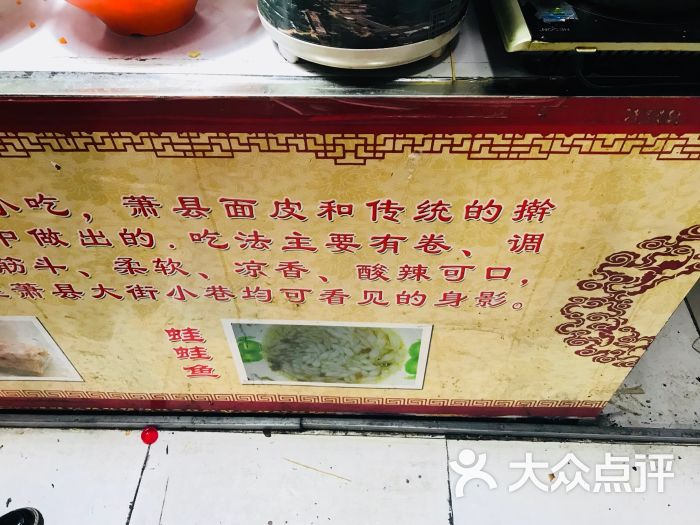 小吃，萧县面皮和传统的擀
中做出的．吃法主要有卷、调
筋斗、柔软、凉香、酸辣可口，
萧县大街小巷均可看见的身影。
蛙蛙鱼
大众点评